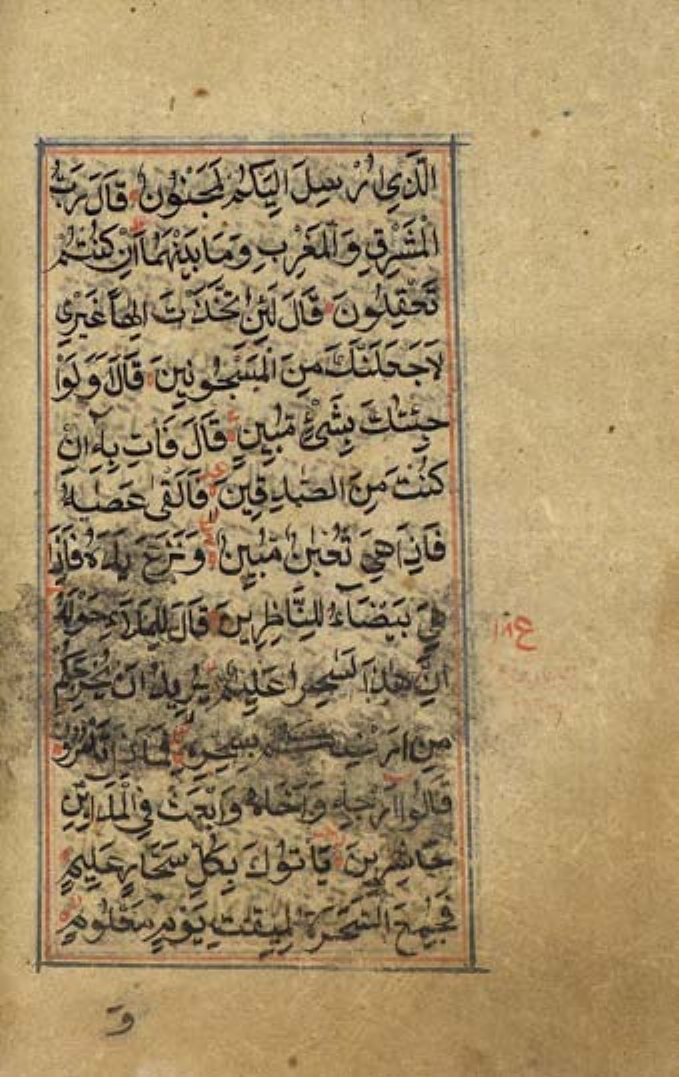 الَّذِي اُرْسِلَ اِلَيْكُمْ لَمَجْنُوْنٌ قَالَ رَبُّ
الْمَشْرِقِ وَالْمَغْرِبِ وَمَا بَيْنَهُمَا اِنْ كُنْتُمْ
تَعْقِلُوْنَ قَالَ لَئِنِ اتَّخَذْتَ اِلٰهًا غَيْرِي
لَاَجْعَلَنَّكَ مِنَ الْمَسْجُوْنِيْنَ قَالَ اَوَلَوْ
جِئْتُكَ بِشَيْءٍ مُّبِيْنٍ قَالَ فَأْتِ بِهٖ اِنْ
كُنْتَ مِنَ الصّٰدِقِيْنَ فَاَلْقٰى عَصَاهُ
فَاِذَا هِيَ ثُعْبَانٌ مُّبِيْنٌ وَّنَزَعَ يَدَهُ فَاِذَا
هِيَ بَيْضَاءُ لِلنَّاظِرِيْنَ قَالَ لِلْمَلَاِ حَوْلَهُ
اِنَّ هٰذَا لَسٰحِرٌ عَلِيْمٌ يُّرِيْدُ اَنْ يُّخْرِجَكُمْ
مِنْ اَرْضِكُمْ بِسِحْرِهٖ فَمَاذَا تَأْمُرُوْنَ
قَالُوْا اَرْجِهْ وَاَخَاهُ وَابْعَثْ فِي الْمَدَايِنِ
حَاشِرِيْنَ يَأْتُوْكَ بِكُلِّ سَحَّارٍ عَلِيْمٍ
فَجُمِعَ السَّحَرَةُ لِمِيْقٰتِ يَوْمٍ مَّعْلُوْمٍ
وَ